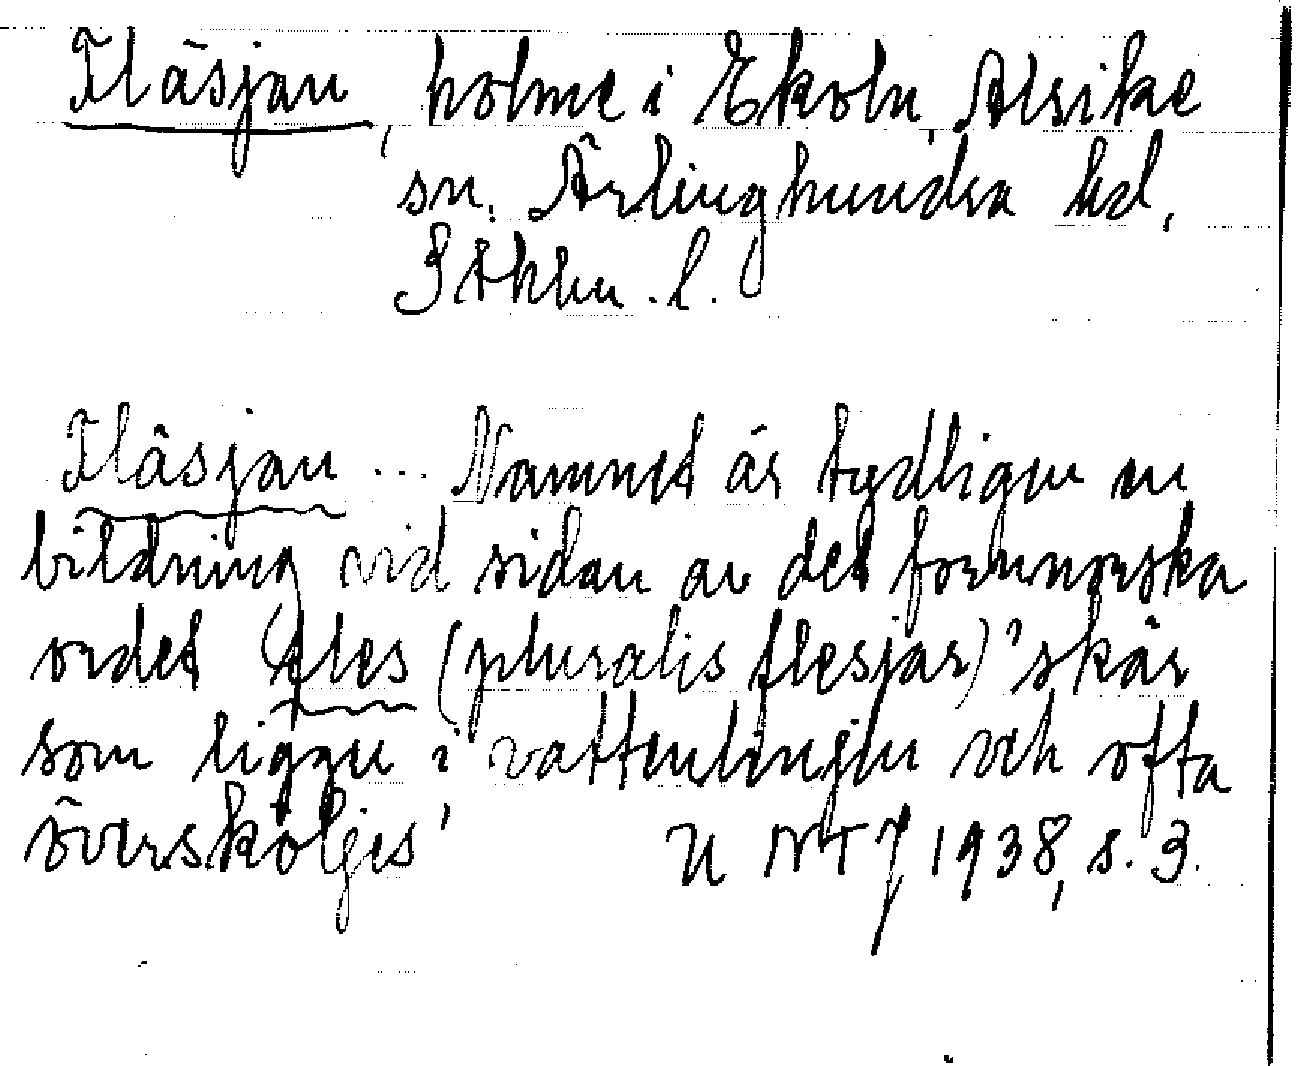 Fläsjan, holme i Ekoln, Alsike
sn. Ärlinghundra hd,
Sthlm. l.
Fläsjan ... Namnet är tydligen en
bildning vid sidan av det fornnorska
ordet fles (pluralis flesjar) 'skär
som ligger i vattenlinjen och ofta
översköljes' U NT 1938, s. 3.